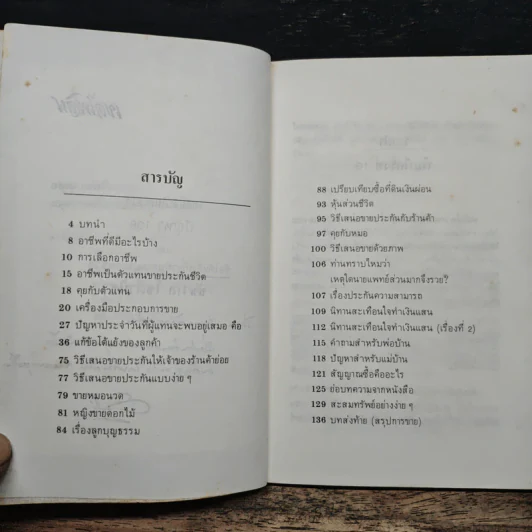 สารบัญ
4 บทนำ
8 อาชีพที่ดีมีอะไรบ้าง
10 การเลือกอาชีพ
15 อาชีพเป็นตัวแทนขายประกันชีวิต
18 คุยกับตัวแทน
20 เครื่องมือประกอบการขาย
27 ปัญหาประจำวันที่ผู้แทนจะพบอยู่เสมอ คือ
36 แก้ข้อโต้แย้งของลูกค้า
75 วิธีเสนอขายประกันให้เจ้าของร้านค้าย่อย
77 วิธีเสนอขายประกันแบบง่าย ๆ
79 ขายหมอนวด
81 หญิงขายดอกไม้
84 เรื่องลูกบุญธรรม
88 เปรียบเทียบซื้อที่ดินเงินผ่อน
93 หุ้นส่วนชีวิต
95 วิธีเสนอขายประกันกับร้านค้า
97 คุยกับหมอ
100 วิธีเสนอขายด้วยภาพ
106 ท่านทราบไหมว่า
เหตุใดนายแพทย์ส่วนมากจึงรวย?
107 เรื่องประกันความสามารถ
109 นิทานสะเทือนใจทำเงินแสน
112 นิทานสะเทือนใจทำเงินแสน (เรื่องที่ 2)
115 คำถามสำหรับพ่อบ้าน
118 ปัญหาสำหรับแม่บ้าน
121 สัญญาณซื้อคืออะไร
125 ย่อบทความจากหนังสือ
129 สะสมทรัพย์อย่างง่าย ๆ
136 บทส่งท้าย (สรุปการขาย)